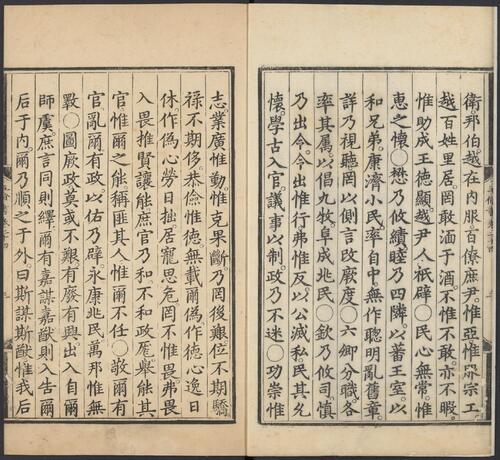 衛邦伯越在内服百僚庶尹惟亞惟服宗工
越百姓里居罔敢湎于酒不惟不敢亦不暇
惟助成王德顯越尹人祗辟○民心無常惟
惠之懷○懋乃攸績睦乃四隣以蕃王室以
和兄弟康濟小民率自中無作聰明亂舊章
詳乃視聽罔以側言改厥度○六卿分職各
率其屬以倡九牧阜成兆民○欽乃攸司慎
乃出令令出惟行弗惟反以公滅私民其允
懷學古入官議事以制政乃不迷○功崇惟
志業廣惟勤惟克果斷乃罔後艱位不期驕
祿不期侈恭儉惟德無載爾偽作德心逸日
休作偽心勞日拙居寵思危罔不惟畏弗畏
入畏推賢讓能庶官乃和不和政厖舉能其
官惟爾之能稱匪其人惟爾不任○敬爾有
官亂爾有政以佑乃辟永康兆民萬邦惟無
斁○圖厥政莫或不艱有廢有興出入自爾
師虞庶言同則繹爾有嘉謀嘉猷則入告爾
后于内爾乃順之于外曰斯謀斯猷惟我后